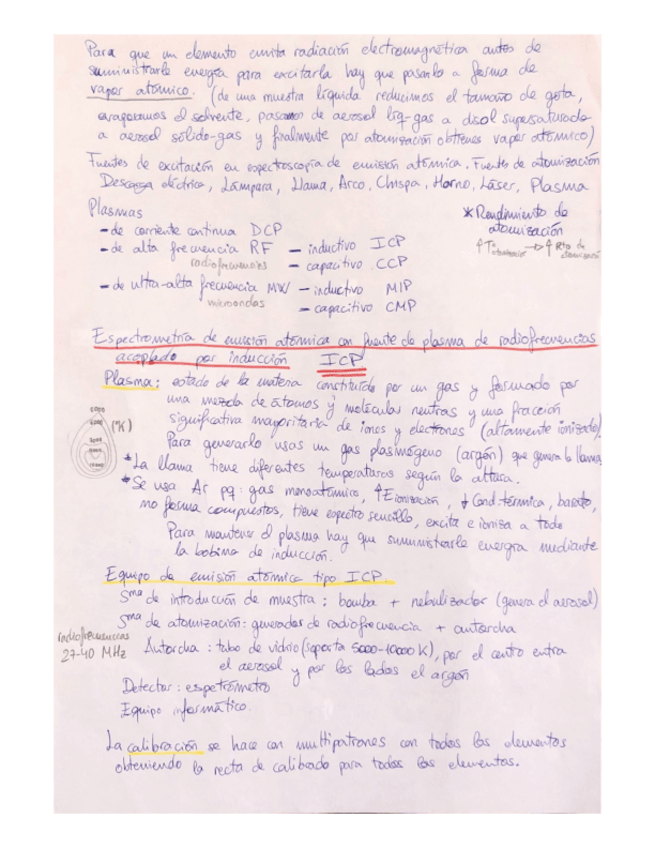 Para que un elemento emita radiación electromagnética antes de
suministrarle energía para excitarla hay que pasarlo a forma de
vapor atómico. (de una muestra líquida reducimos el tamaño de gota,
evaporamos el solvente, pasamos de aerosol líq-gas a disol supersaturada
a aerosol sólido-gas y finalmente por atomización obtienes vapor atómico)
Fuentes de excitación en espectroscopía de emisión atómica. Fuentes de atomización
Descarga eléctrica, Lámpara, Llama, Arco, Chispa, Horno, Láser, Plasma
Plasmas
- de corriente continua DCP
- de alta frecuencia RF - inductivo ICP
radiofrecuencias - capacitivo CCP
- de ultra-alta frecuencia MW - inductivo MIP
microondas - capacitivo CMP
* Rendimiento de
atomización
↑ Tª → ↑ Rto de
Espectrometría de emisión atómica con fuente de plasma de radiofrecuencias
acoplado por inducción ICP
Plasma: estado de la materia constituido por un gas y formado por
una mezcla de átomos y molecular neutras y una fracción
significativa mayoritaria de iones y electrones (altamente ionizado).
Para generarlo usas un gas plasmógeno (argón) que genera la llama
(°K)
* La llama tiene diferentes temperaturas según la altura.
* Se usa Ar pq: gas monoatómico, ↑Eionización, ↓Cond.térmica, barato,
no forma compuestos, tiene espectro sencillo, excita e ioniza a todo
Para mantener el plasma hay que suministrarle energía mediante
la bobina de inducción.
Equipo de emisión atómica tipo ICP.
Sma de introducción de muestra: bomba + nebulizador (genera el aerosol)
Sma de atomización: generador de radiofrecuencia + antorcha
radiofrecuencias
27-40 MHz
Antorcha: tubo de vidrio (soporta 5000-10000 K), por el centro entra
el aerosol y por los lados el argón
Detector: espetrómetro
Equipo informático.
La calibración se hace con multipatrones con todos los elementos
obteniendo la recta de calibrado para todos los elementos.